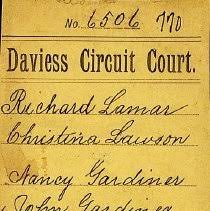 No. 6506 770
Daviess Circuit Court.
Richard Lamar
Christina Lawson
Nancy Gardiner
John Gardiner